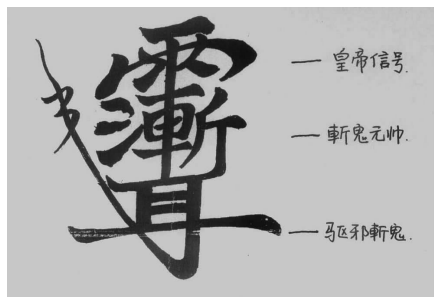 — 皇帝信号.
— 斬鬼元帅.
— 驱邪斬鬼.